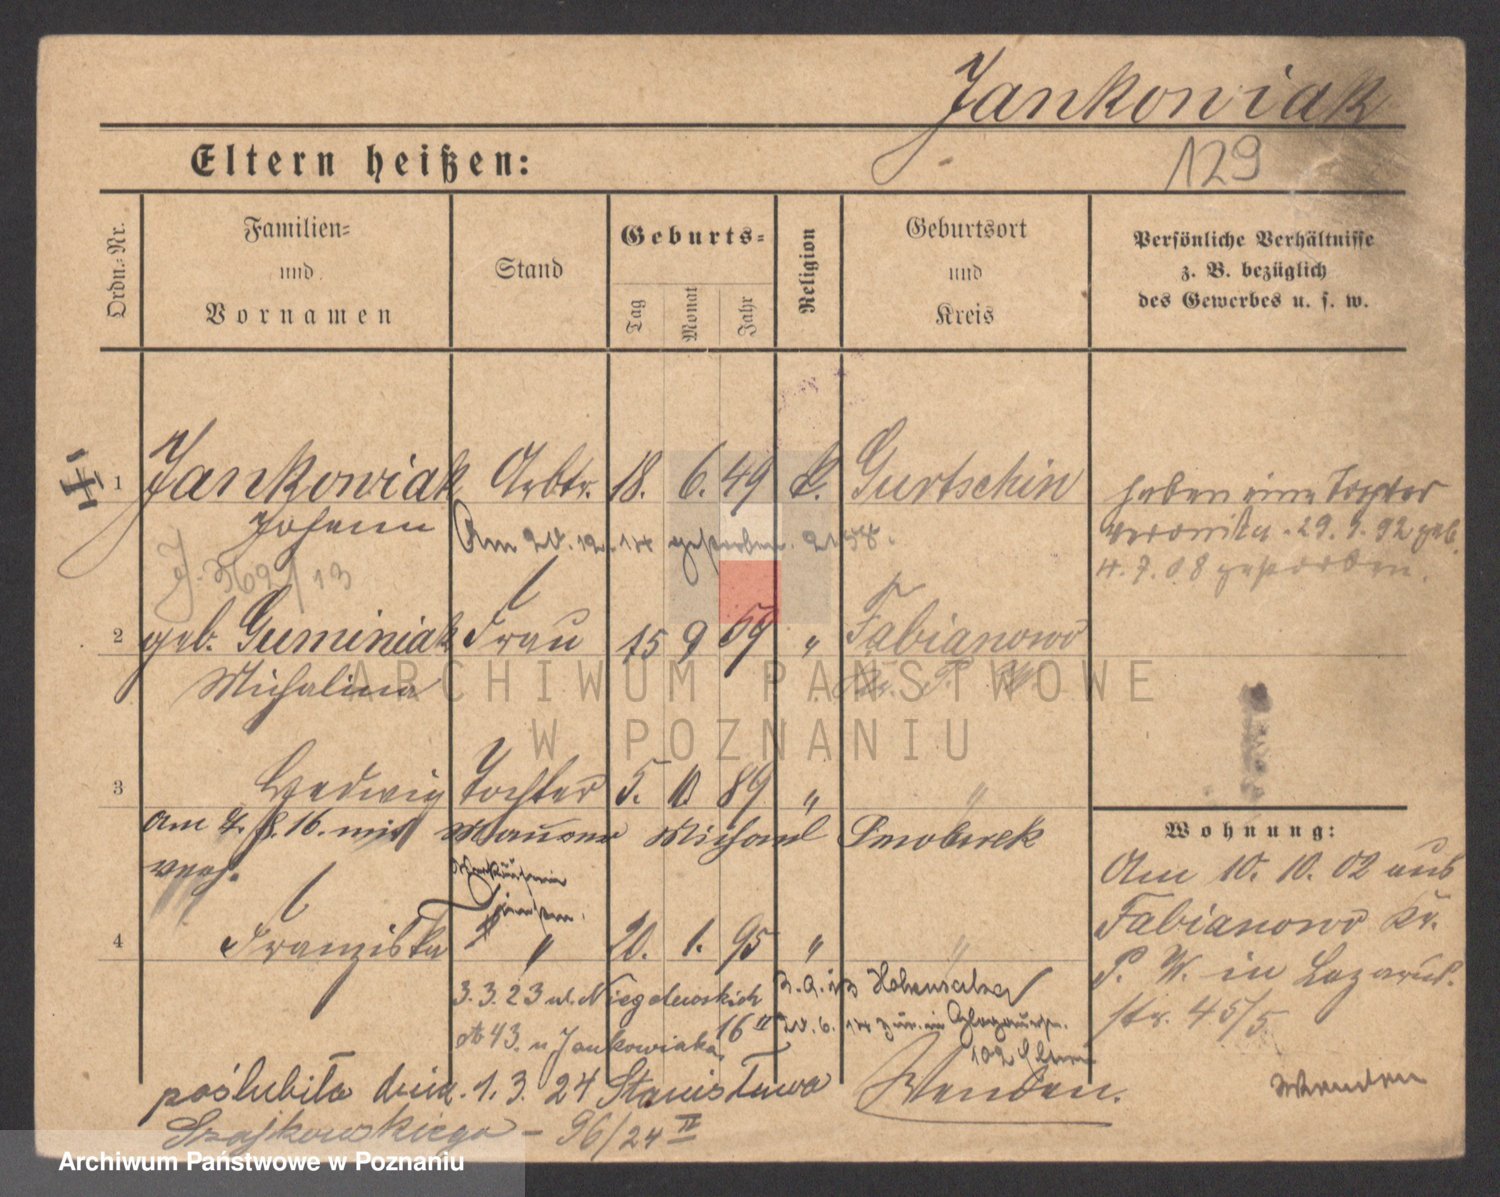 Jankowiak
129
Eltern heißen:
Ordn.-Nr.
Familien-
und
Vornamen
Stand
Geburts-
Tag
Monat
Jahr
Religion
Geburtsort
und
Kreis
Persönliche Verhältnisse
z. B. bezüglich
des Gewerbes u. s. w.
1 Jankowiak Arbtr. 18. 6. 49 k. Gurtschin
Johann
Am 20.12.14 gestorben.
haben eine Tochter
Veronika 29.1.92 geb.
4.7.08 gestorben.
J. 369/13
2 geb. Guminiak Frau 15 9 59 " Fabianowo
Michalina Kr. P. W.
3 Hedwig Tochter 5. 10. 89 " "
Am 7. 8. 16. mit Maurer Michael Smolarek
verh.
4 Franziska " 20. 1. 95 " "
3.3.23 ul. Niegolewskich
16 II
u Jankowiaka
Hohensalza
102 Eltern
Wenden.
poślubiła dnia 1.3.24 Stanisława
Szajkowskiego - 96/24 IV
Wohnung:
Am 10. 10. 02 aus
Fabianowo Kr.
P. W. in Lazarus.
str. 45/5.
Wenden
ARCHIWUM PAŃSTWOWE
W POZNANIU
Archiwum Państwowe w Poznaniu